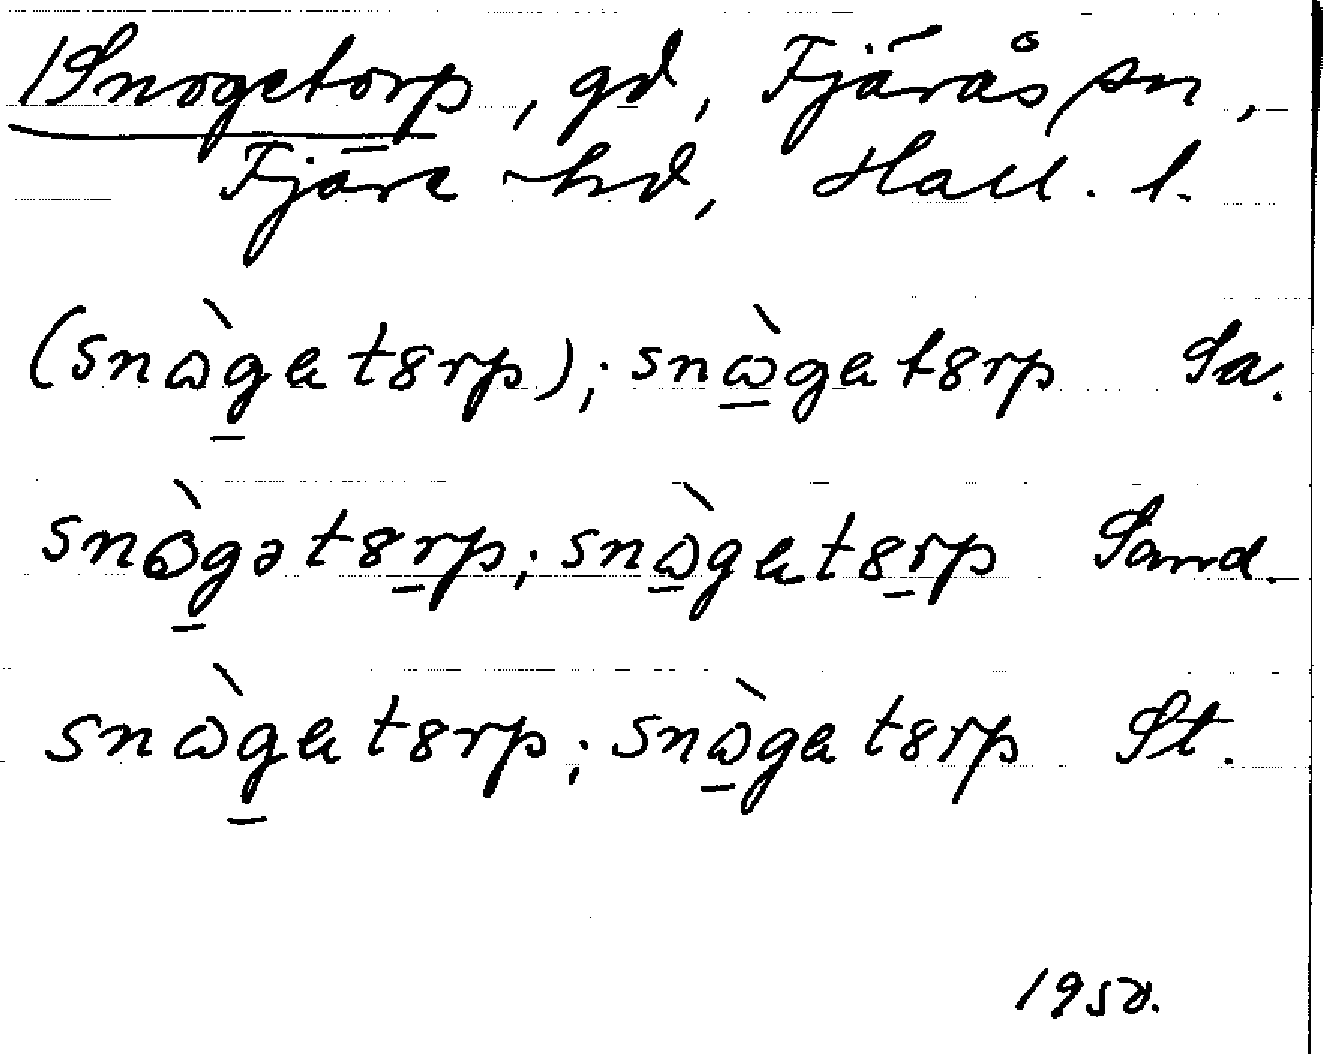 1 Snogetorp, gd, Fjärås sn,
Fjäre hd, Hall. l.
(snɷ̀gat8rp); snɷ̀gat8rp Sa.
snɷ̀gət8rp; snɷ̀gat8rp Sand.
snɷ̀gat8rp; snɷ̀gat8rp St.
1950.